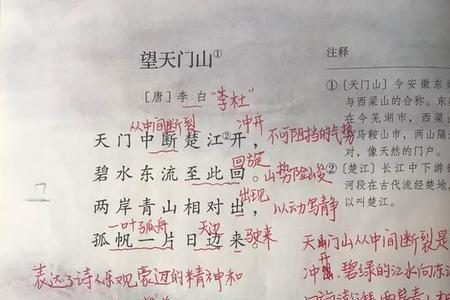 望天门山①
[唐] 李 白 "李杜"
从中间断裂 冲开
天门中断楚江②开，不可阻挡的气势
回旋
碧水东流至此回。山势险峻
出现
两岸青山相对出，以动写静
一叶孤舟 天边
孤帆一片日边来。驶来
表达了诗人乐观豪迈的精神和
注释
①［天门山］今安徽东
与西梁山的合称。东
在今芜湖市，西梁山
马鞍山市，两山隔
对，像天然的门户。
②［楚江］长江中下游
河段在古代流经楚地，
以叫楚江。
天门山从中间断裂是
冲开，碧绿的江水向东